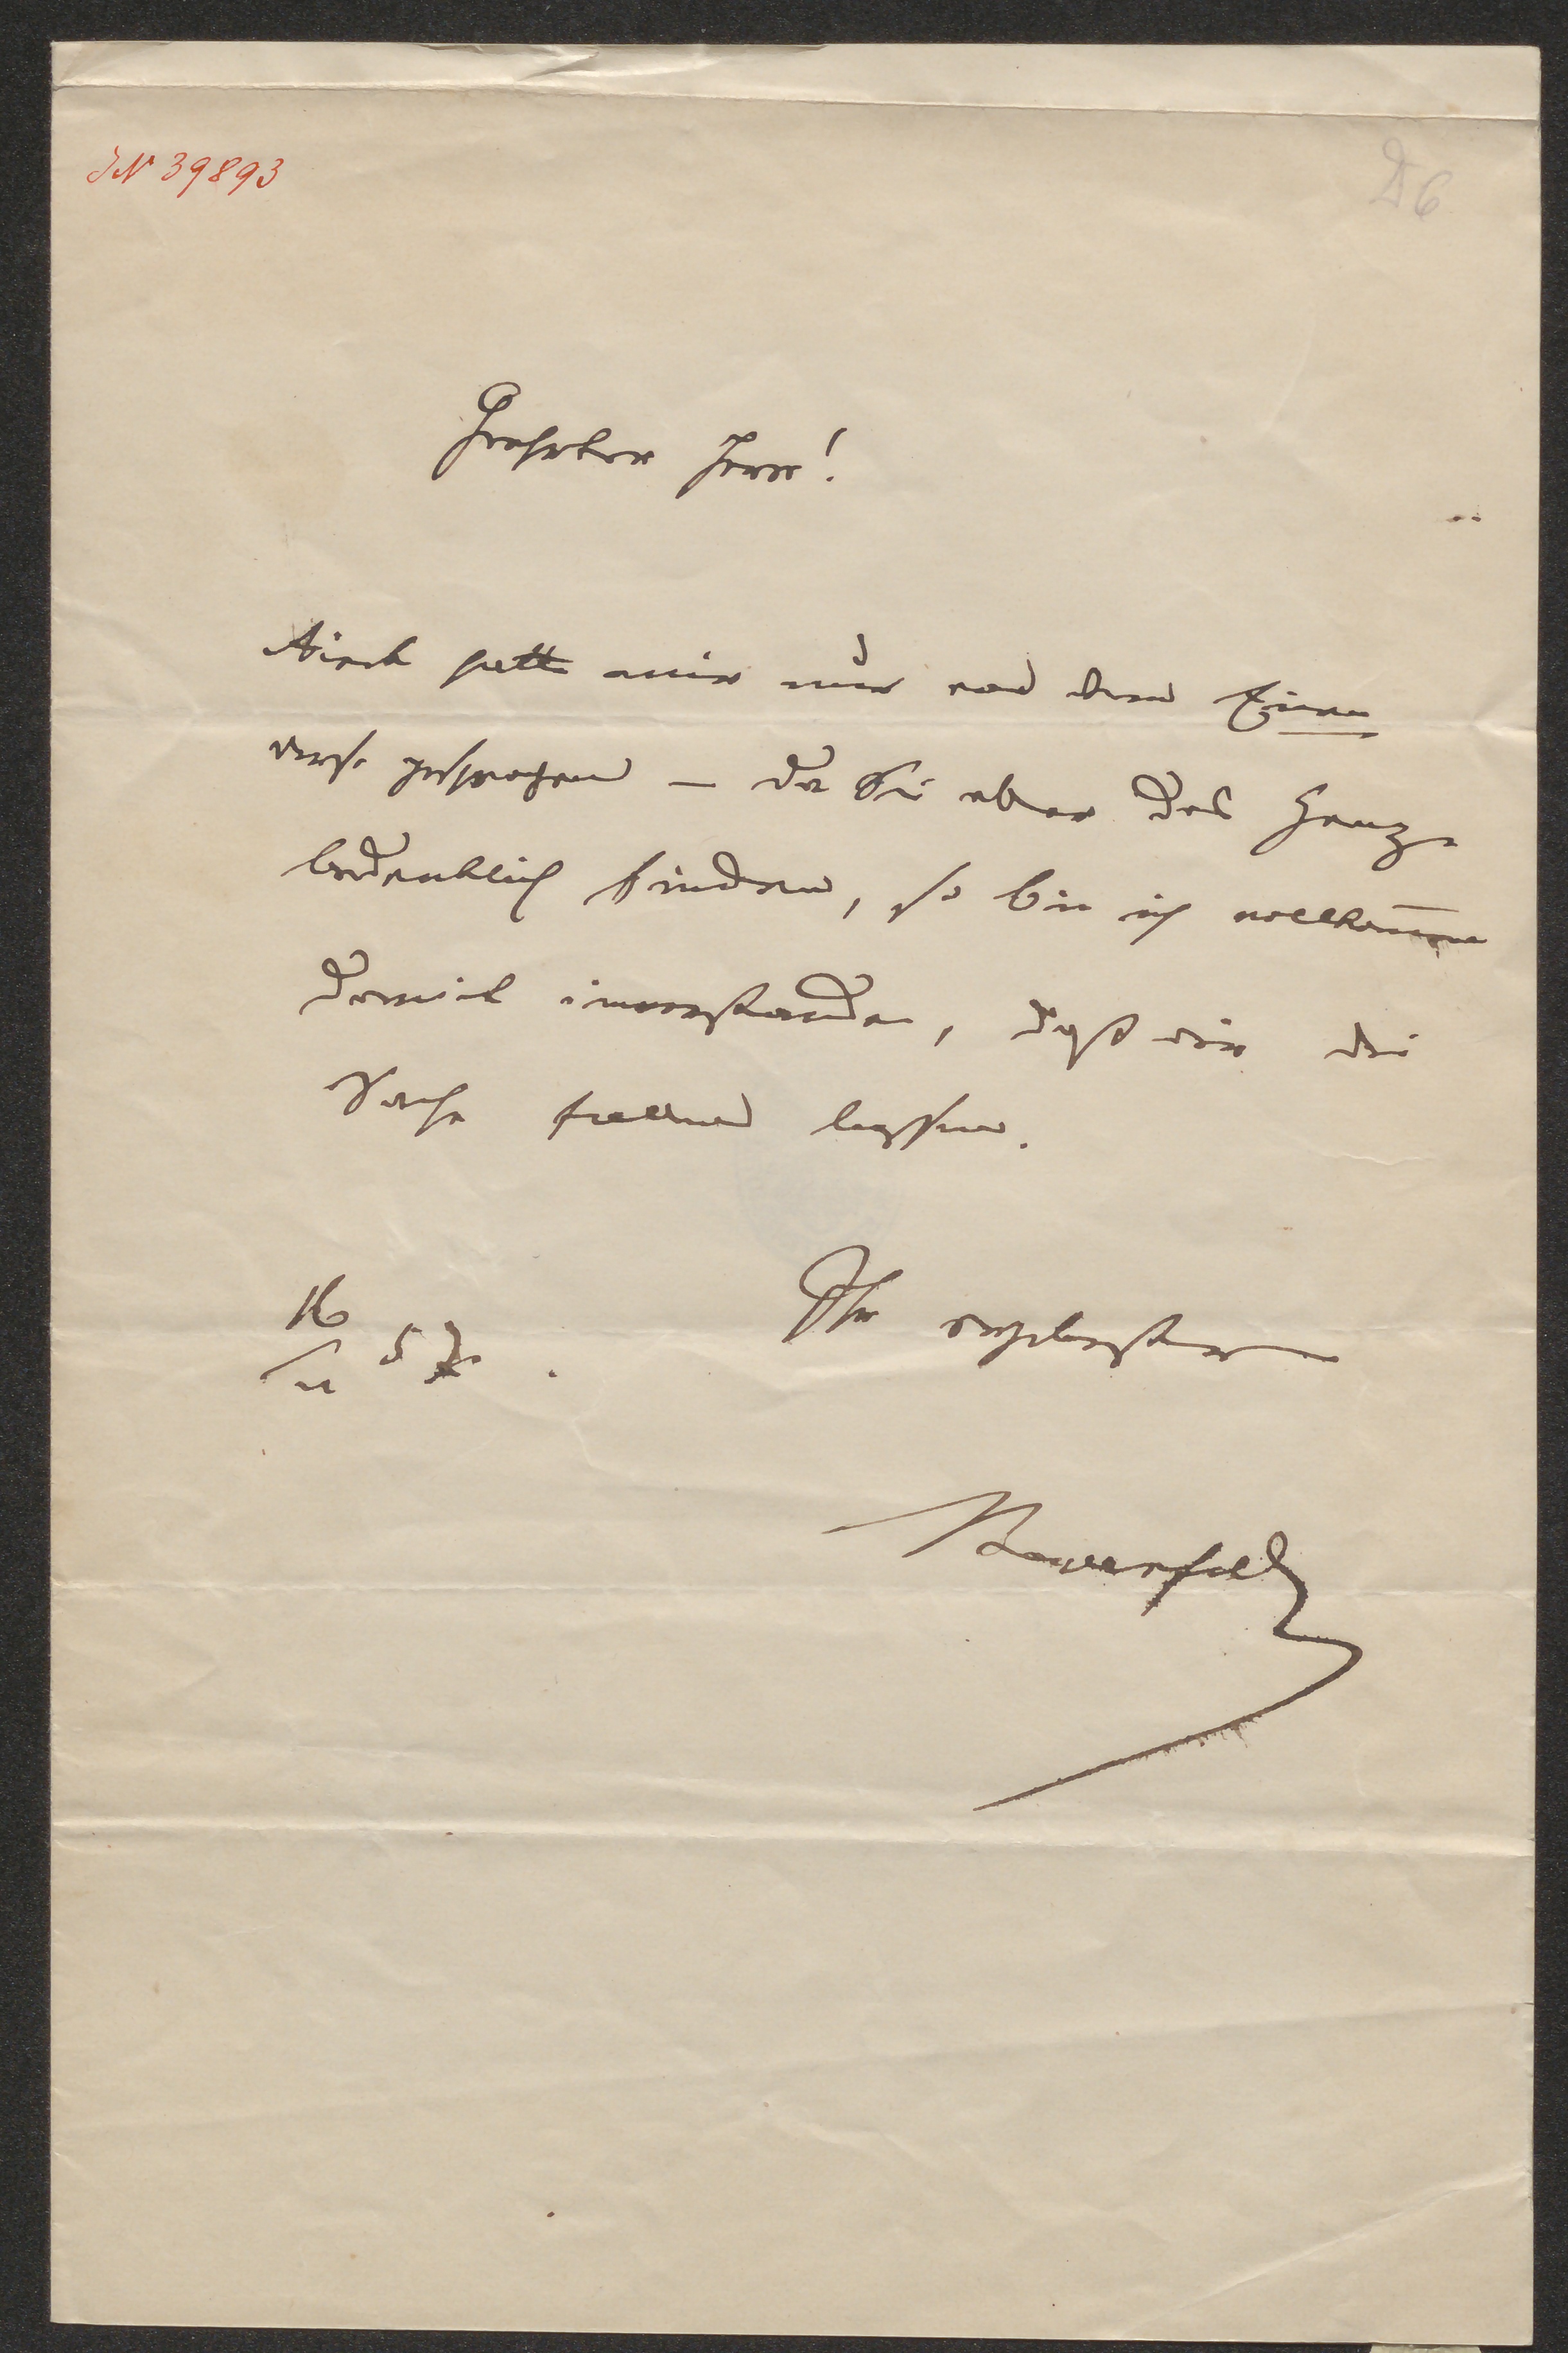 IN 39893
D6
Geehrter Herr!
hatte mir nur von dem Einen
Verse gesprochen – da Sie aber das Ganze
bedenklich finden, so bin ich vollkom̄en
damit einverstanden, daß wir die
Sache fallen lassen.
Ihr ergebenster
16
57.
Bauernfeld